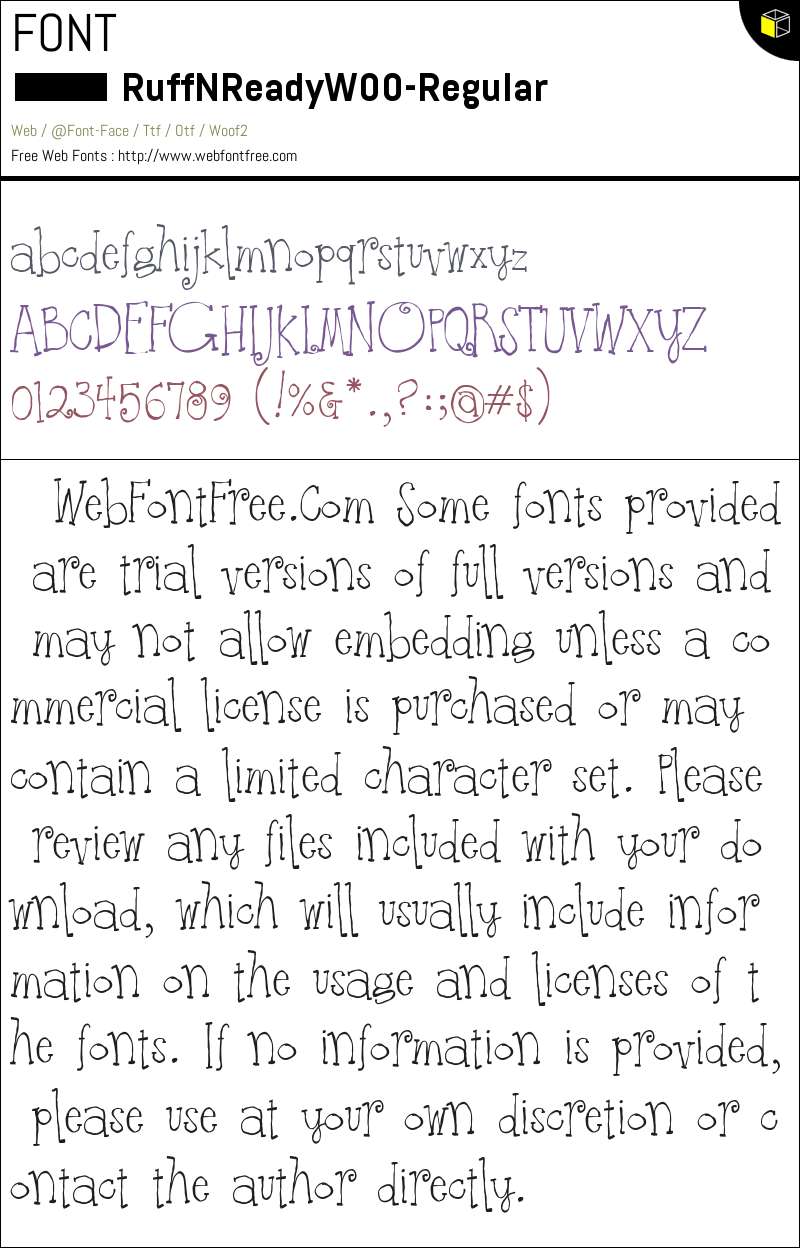 FONT
RuffNReadyW00-Regular
Web / @Font-Face / Ttf / Otf / Woof2
Free Web Fonts : http://www.webfontfree.com
abcdefghijklmnopqrstuvwxyz
ABCDEFGHIJKLMNOPQRSTUVWXYZ
0123456789 (!%&*.,?:;@#$)
WebFontFree.Com Some fonts provided
are trial versions of full versions and
may not allow embedding unless a co
mmercial license is purchased or may
contain a limited character set. Please
review any files included with your do
wnload, which will usually include infor
mation on the usage and licenses of t
he fonts. If no information is provided,
please use at your own discretion or c
ontact the author directly.